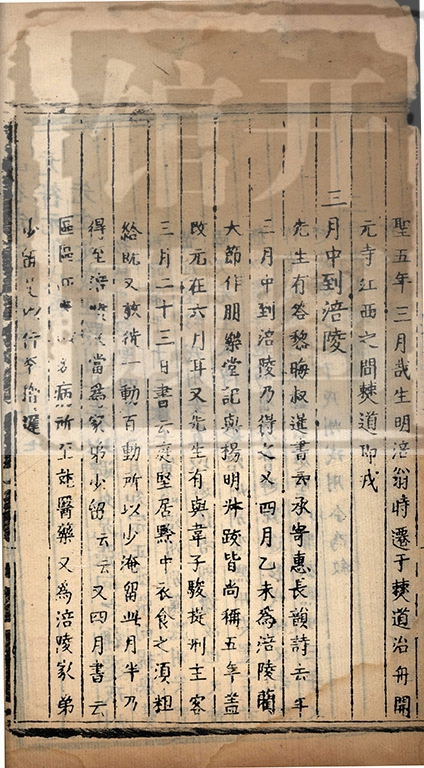 聖五年三月哉生明涪翁將遷于僰道治舟開
元寺江西之間僰道即戎
三月中到涪陵
先生有答黎晦叔遲書云承寄惠長韻詩云年
二月中到涪陵乃得之又四月乙未為涪陵藺
大節作朋樂堂記與楊明叔跋皆尚稱五年蓋
改元在六月耳又先生有與韋子駿提刑主客
三月二十三日書云庭堅居黔中衣食之須粗
給既又該徙一動百動所以少淹留此月半乃
得至涪陵當為家弟少留云云又四月書云
區區病所至謁醫藥又為涪陵家弟
少留是以行李